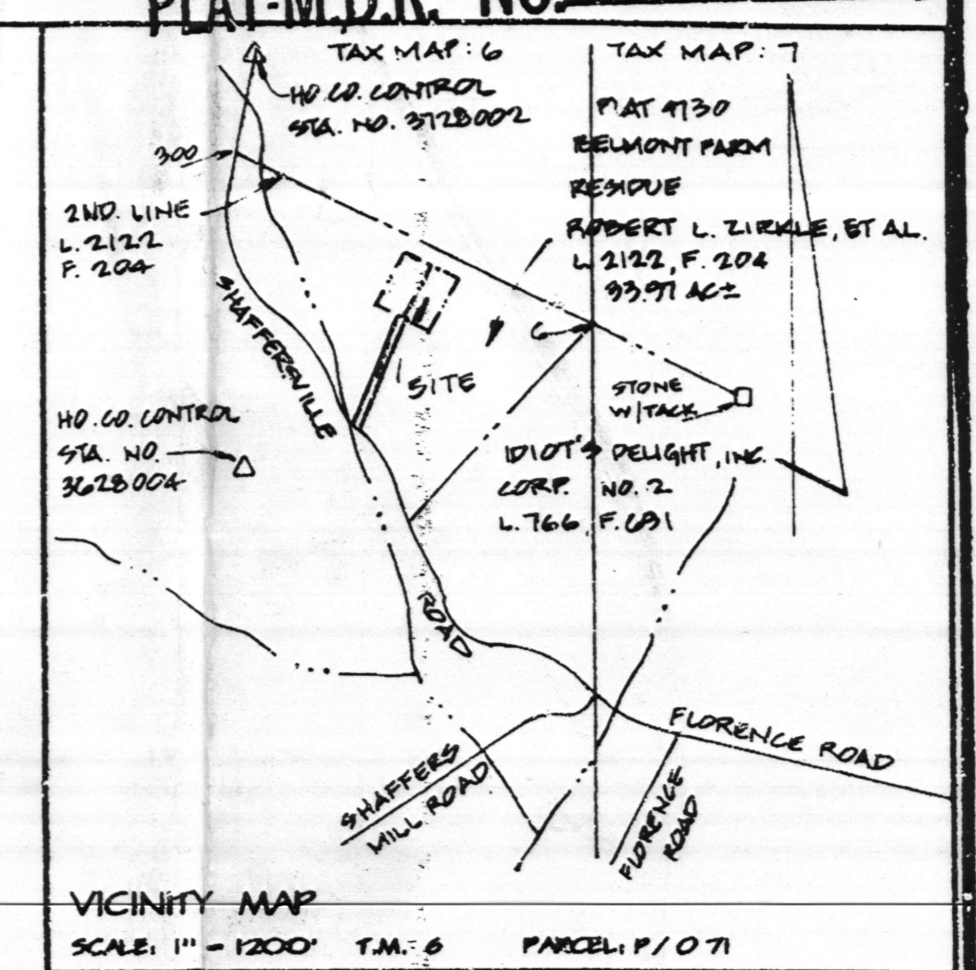 PLAT-M.D.R. NO.
TAX MAP: 6
TAX MAP: 7
HO. CO. CONTROL
STA. NO. 3728002
300
2ND LINE
L. 2122
F. 204
PLAT 9730
BELMONT FARM
RESIDUE
ROBERT L. ZIRKLE, ET AL.
L. 2122, F. 204
33.97 AC±
SHAFFERSVILLE
SITE
STONE
W/TACK
HO. CO. CONTROL
STA. NO.
3628004
IDIOT'S DELIGHT, INC.
CORP. NO. 2
L. 766 F. 691
ROAD
FLORENCE ROAD
SHAFFERS
MILL ROAD
FLORENCE
ROAD
VICINITY MAP
SCALE: 1" = 1200' T.M.- 6 PARCEL: P/O 71